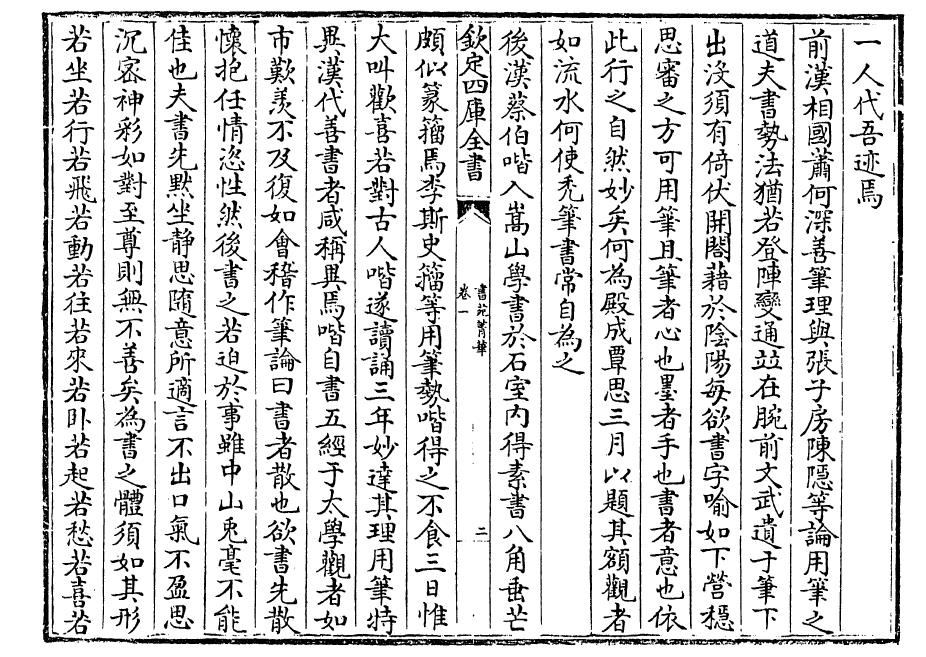 一人代吾迹焉
前漢相國蕭何深善筆理與張子房陳隠等論用筆之
道夫書勢法猶若登陣變通竝在腕前文武遺于筆下
出没須有倚伏開闔藉於陰陽每欲書字喻如下營穩
思審之方可用筆且筆者心也墨者手也書者意也依
此行之自然妙矣何為殿成覃思三月以題其額觀者
如流水何使秃筆書常自為之
後漢蔡伯喈入嵩山學書於石室内得素書八角垂芒
欽定四庫全書
書苑菁華
卷一
二
頗似篆籀焉李斯史籀等用筆勢喈得之不食三日惟
大叫歡喜若對古人喈遂讀誦三年妙達其理用筆特
異漢代善書者咸稱異焉喈自書五經于太學觀者如
市歎羡不及復如會稽作筆論曰書者散也欲書先散
懷抱任情恣性然後書之若迫於事雖中山兎毫不能
佳也夫書先黙坐静思隨意所適言不出口氣不盈思
沉宻神彩如對至尊則無不善矣為書之體須如其形
若坐若行若飛若動若往若來若卧若起若愁若喜若